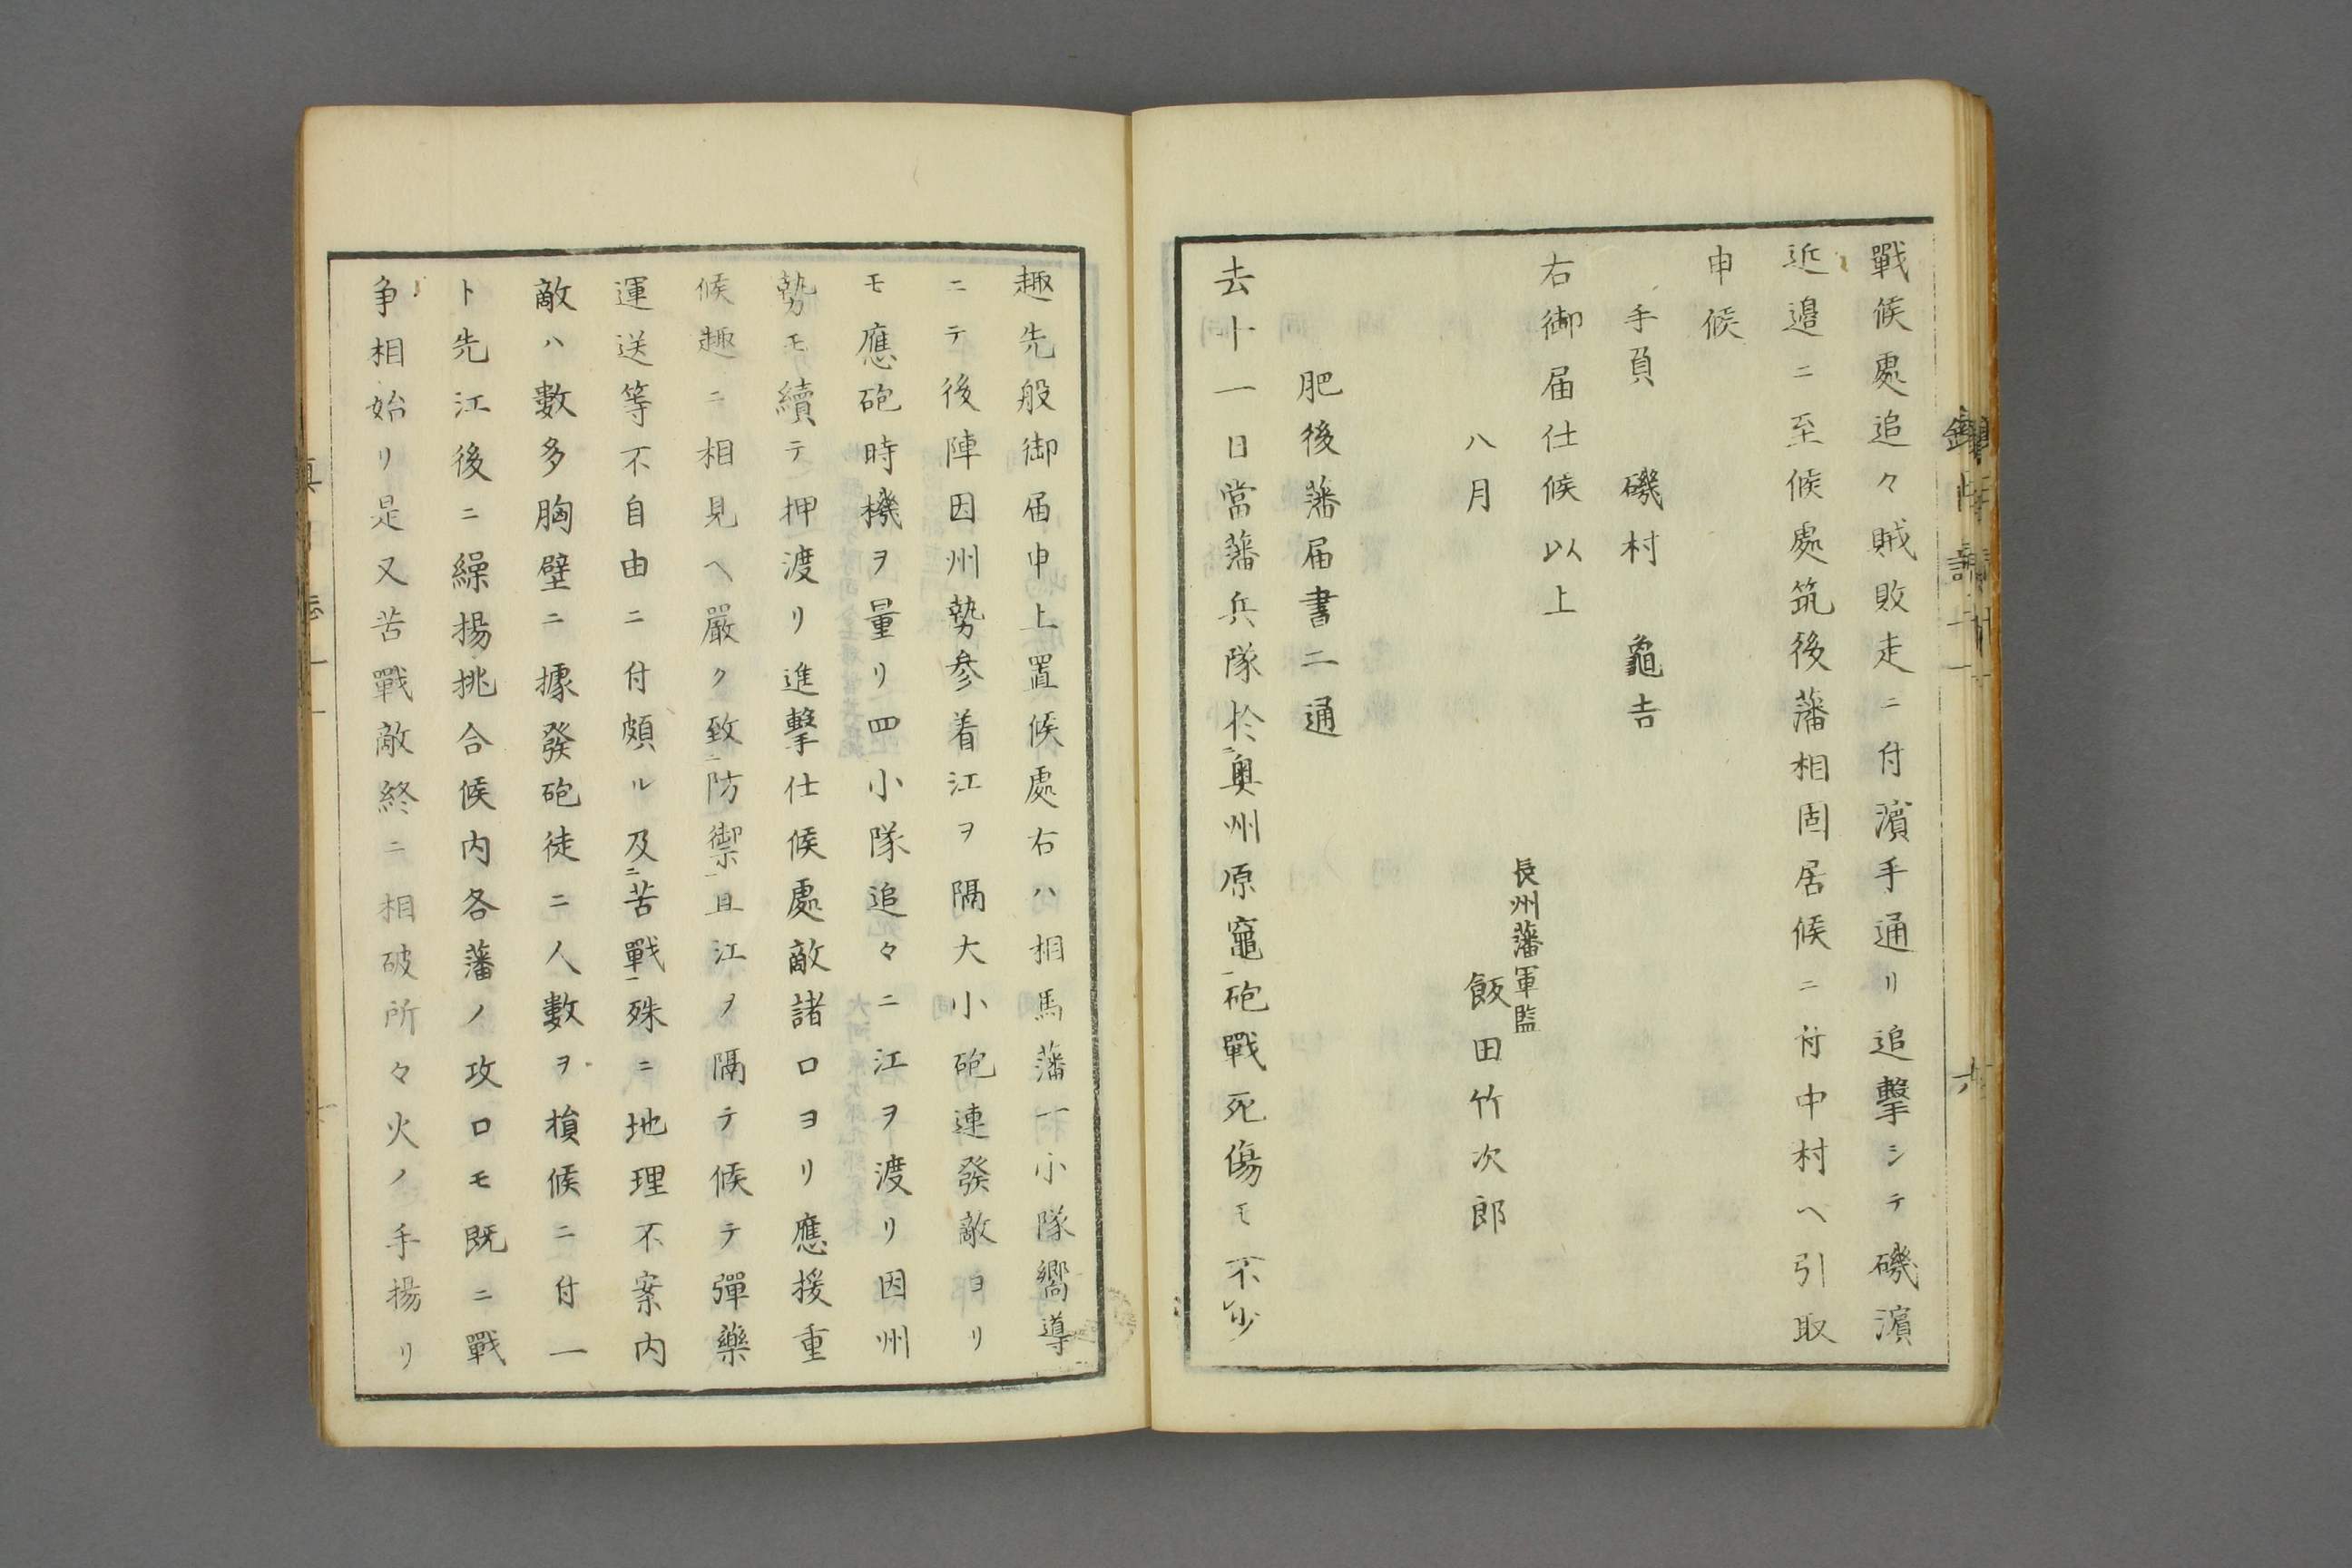 戰候處追々賊敗走ニ付濵手通リ追擊シテ磯濵
近邉ニ至候處筑後藩相固居候ニ付中村ヘ引取
申候
手負　磯村　龜吉
右御届仕候以上
八月
長州藩軍監
飯田竹次郎
肥後藩届書二通
去十一日當藩兵隊於ニ奥州原竈一砲戰死傷モ不少
趣先般御届申上置候處右ハ相馬藩一小隊嚮導
ニテ後陣因州勢参着江ヲ隔大小砲連發敵ヨリ
モ應砲時機ヲ量リ四小隊追々ニ江ヲ渡リ因州
勢モ續テ押渡リ進擊仕候處敵諸口ヨリ應援重
候趣ニ相見ヘ嚴ク致ニ防禦一且江ヲ隔テ候テ彈藥
運送等不自由ニ付頗ル及ニ苦戰一殊ニ地理不案内
敵ハ數多胸壁ニ據發砲徒ニ人數ヲ損候ニ付一
ト先江後ニ繰揚挑合候内各藩ノ攻口モ既ニ戰
争相始リ是又苦戰敵終ニ相破所々火ノ手揚リ
六